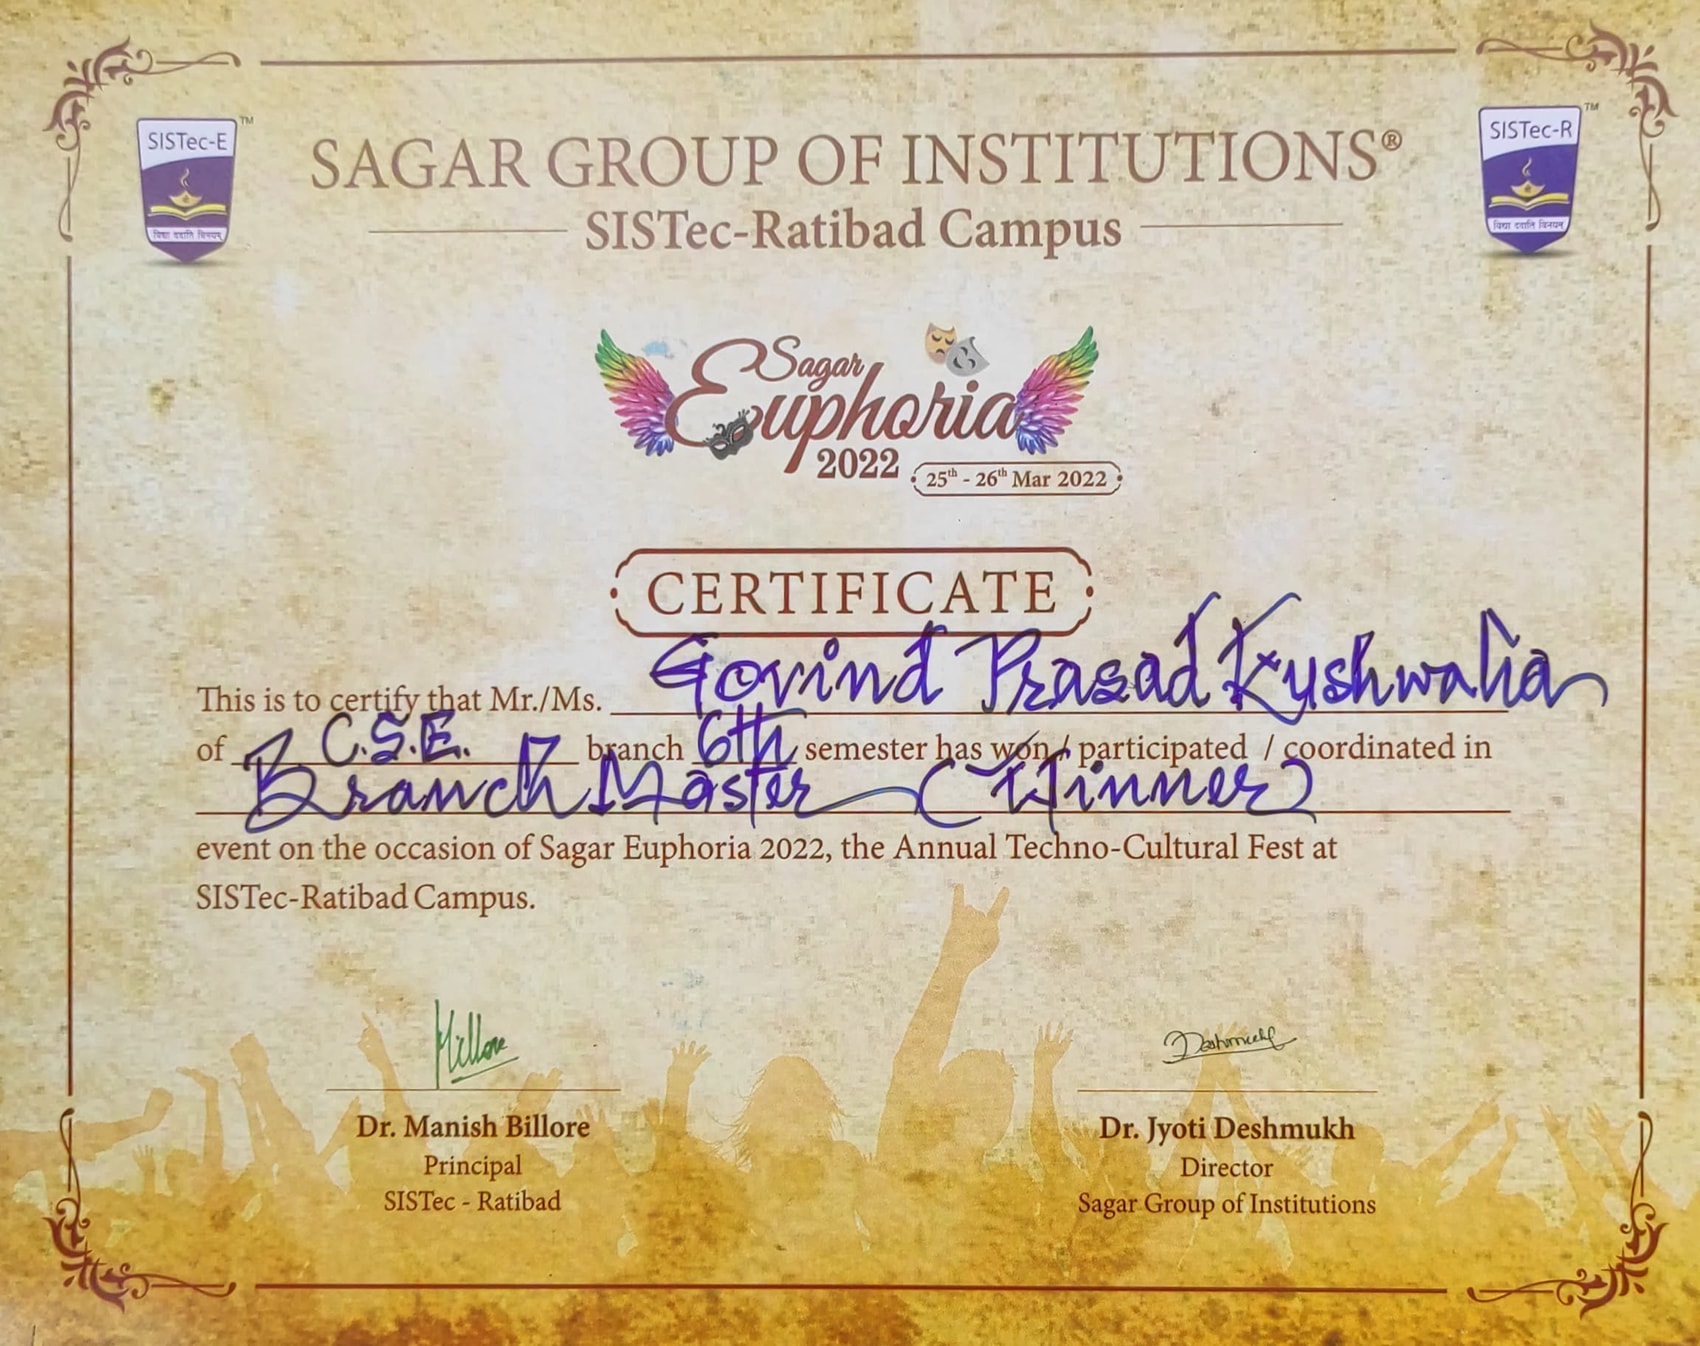 SISTec-E™
विद्या ददाति विनयम्
SAGAR GROUP OF INSTITUTIONS®
SISTec-Ratibad Campus
SISTec-R™
विद्या ददाति विनयम्
Sagar
Euphoria
2022
25th - 26th Mar 2022
CERTIFICATE
This is to certify that Mr./Ms. Govind Prasad Kushwaha
of C.S.E. branch 6th semester has won / participated / coordinated in
Branch Master (Winner)
event on the occasion of Sagar Euphoria 2022, the Annual Techno-Cultural Fest at
SISTec-Ratibad Campus.
Billore
Dr. Manish Billore
Principal
SISTec - Ratibad
JDeshmukh
Dr. Jyoti Deshmukh
Director
Sagar Group of Institutions